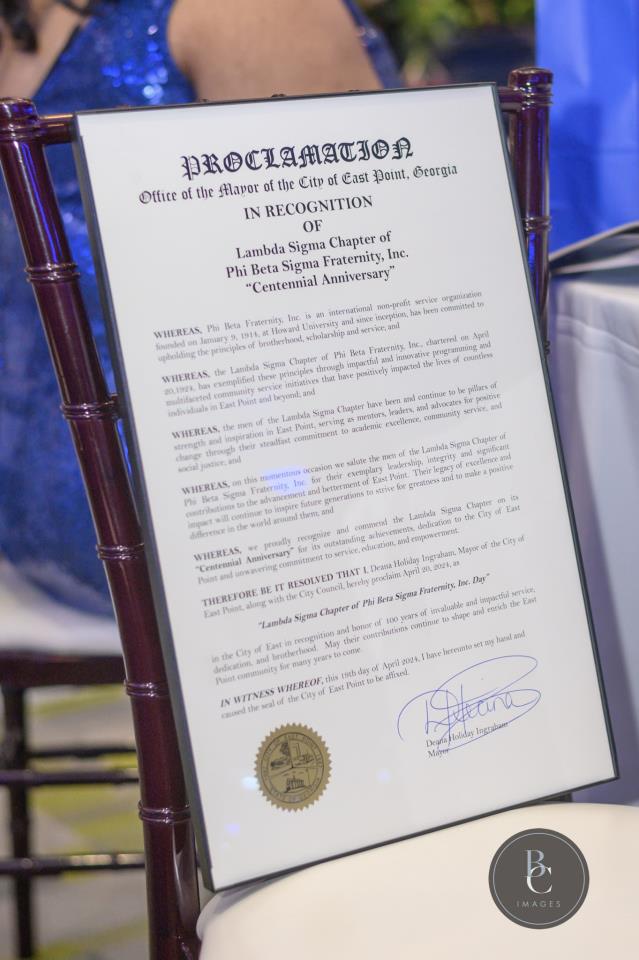 PROCLAMATION
Office of the Mayor of the City of East Point, Georgia
IN RECOGNITION
OF
Lambda Sigma Chapter of
Phi Beta Sigma Fraternity, Inc.
"Centennial Anniversary"
WHEREAS, Phi Beta Fraternity, Inc. is an international non-profit service organization
founded on January 9, 1914, at Howard University and since inception, has been committed to
upholding the principles of brotherhood, scholarship and service; and
WHEREAS, the Lambda Sigma Chapter of Phi Beta Fraternity, Inc., chartered on April
20,1924, has exemplified these principles through impactful and innovative programming and
multifaceted community service initiatives that have positively impacted the lives of countless
individuals in East Point and beyond; and
WHEREAS, the men of the Lambda Sigma Chapter have been and continue to be pillars of
strength and inspiration in East Point, serving as mentors, leaders, and advocates for positive
change through their steadfast commitment to academic excellence, community service, and
social justice; and
WHEREAS, on this momentous occasion we salute the men of the Lambda Sigma Chapter of
Phi Beta Sigma Fraternity, Inc. for their exemplary leadership, integrity and significant
contributions to the advancement and betterment of East Point. Their legacy of excellence and
impact will continue to inspire future generations to strive for greatness and to make a positive
difference in the world around them; and
WHEREAS, we proudly recognize and commend the Lambda Sigma Chapter on its
"Centennial Anniversary" for its outstanding achievements, dedication to the City of East
Point and unwavering commitment to service, education, and empowerment.
THEREFORE BE IT RESOLVED THAT I, Deana Holiday Ingraham, Mayor of the City of
East Point, along with the City Council, hereby proclaim April 20, 2024, as
"Lambda Sigma Chapter of Phi Beta Sigma Fraternity, Inc. Day"
in the City of East in recognition and honor of 100 years of invaluable and impactful service,
dedication, and brotherhood. May their contributions continue to shape and enrich the East
Point community for many years to come.
IN WITNESS WHEREOF, this 19th day of April 2024, I have hereunto set my hand and
caused the seal of the City of East Point to be affixed.
Deana Holiday Ingraham
Mayor
BC
IMAGES